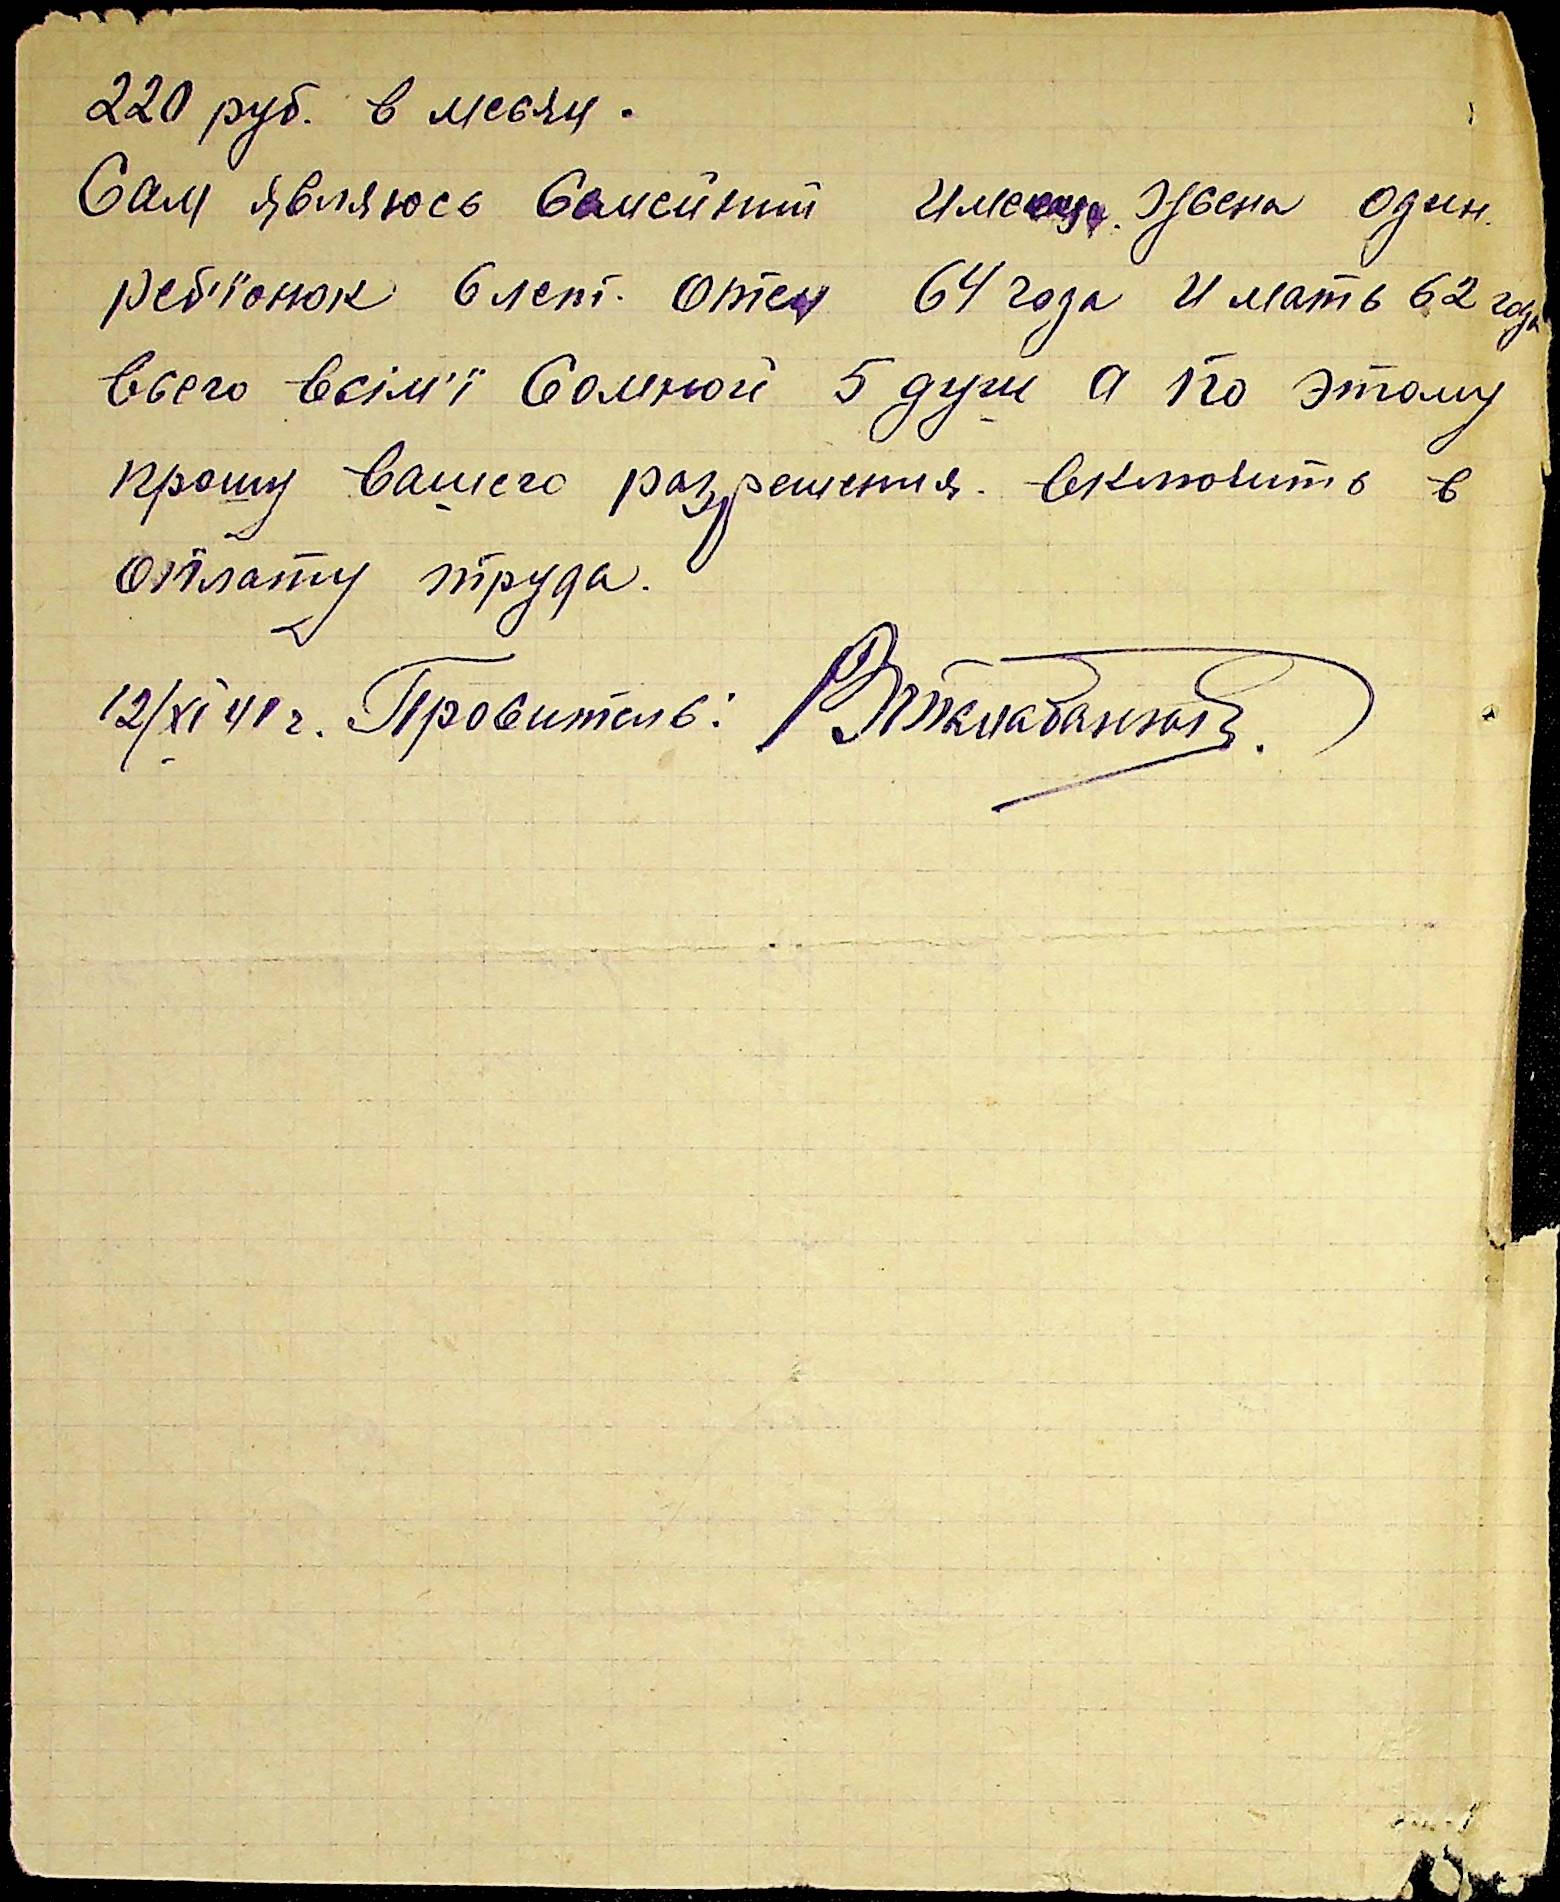 220 руб. в месяц.
Сам являюсь семейний Имею. Жена один.
реб'їонок 6 лет. Отец 64 года и мать 62 года
всего всім'ї сомной 5 душ а по этому
прошу вашего разрешения. включить в
оплату труда.
12/XI 41 г. Провитель: